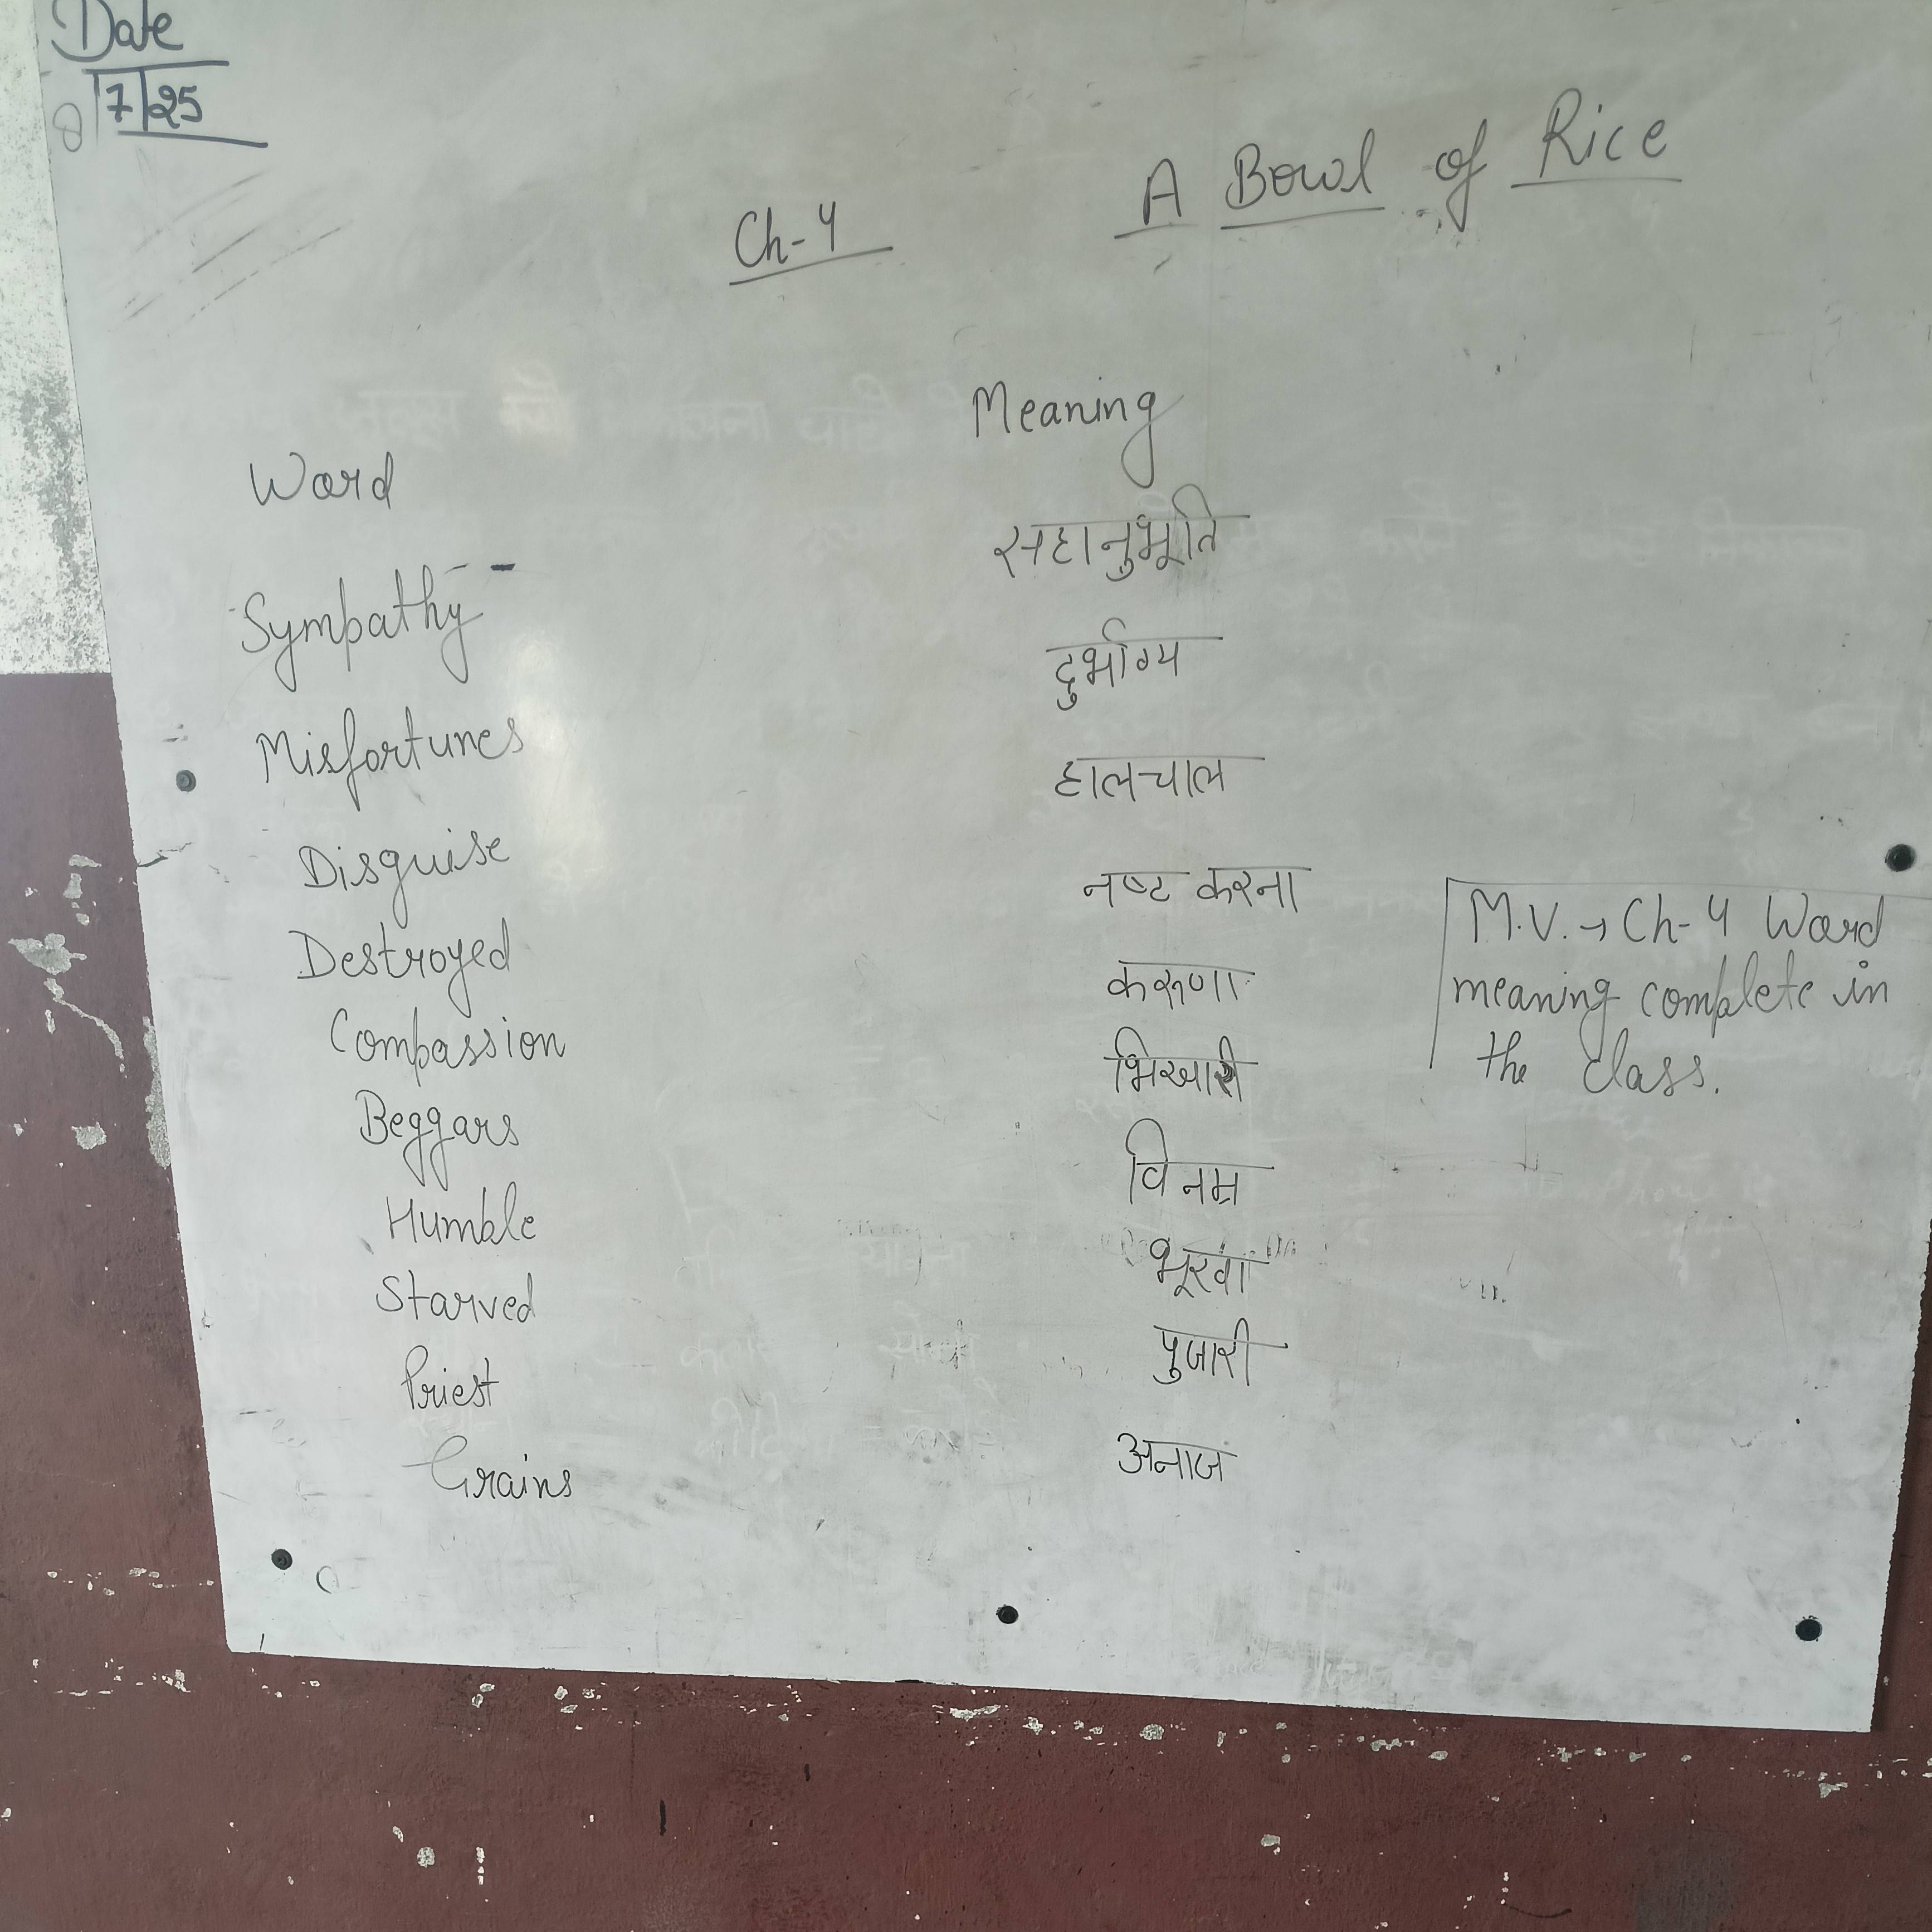 Date
8/7/25
Ch-4 A Bowl of Rice
Word Meaning
Sympathy - सहानुभूति
Misfortunes दुर्भाग्य
Disguise हालचाल
Destroyed नष्ट करना
Compassion करुणा
Beggars भिखारी
Humble विनम्र
Starved भूखा
Priest पुजारी
Grains अनाज
M.V. → Ch-4 Word
meaning complete in
the class.